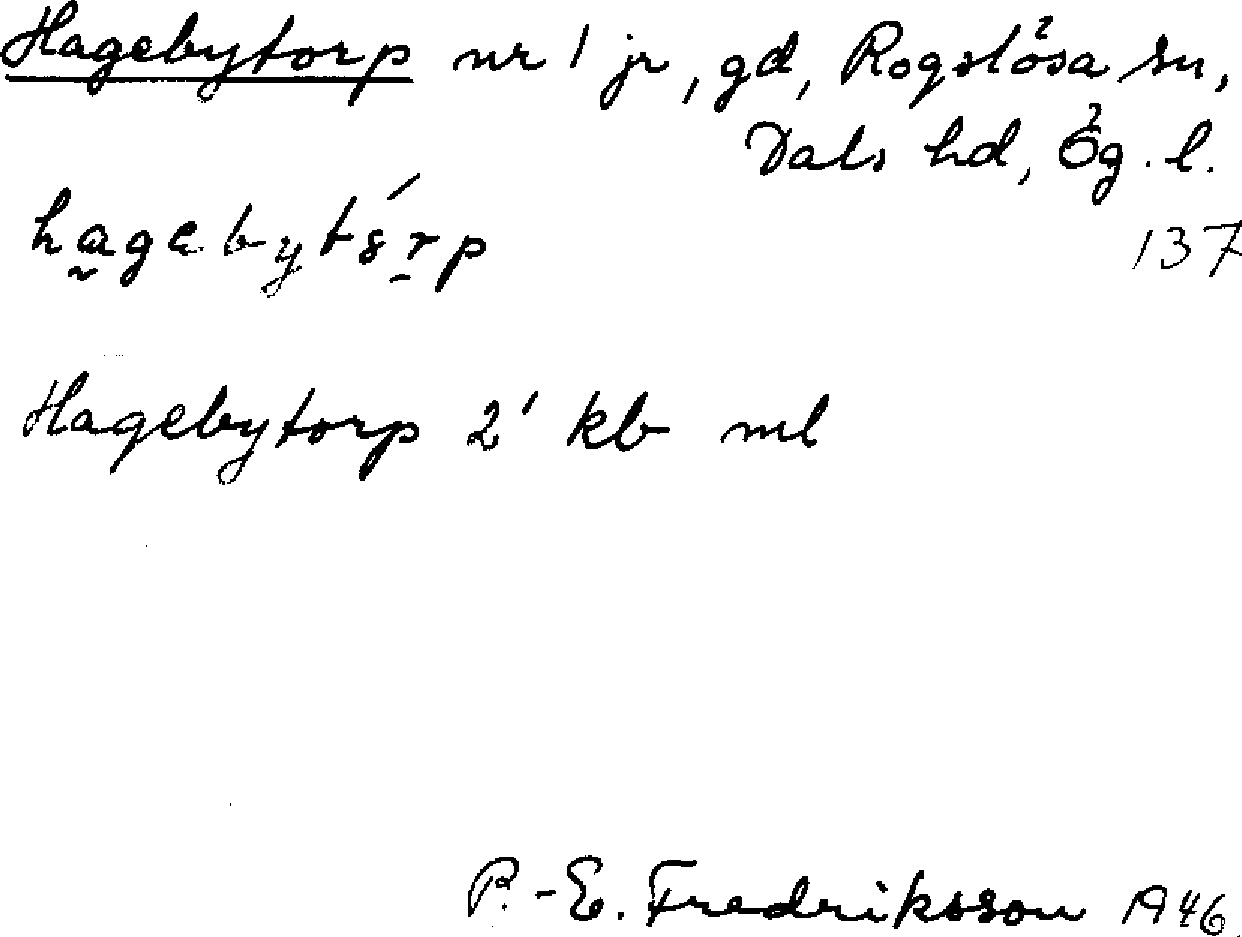 Hagebytorp nr 1 jr, gd, Rogslösa sn,
Dals hd, Ög. l.
137
Hagebytorp 2' kb ml
P.-E. Fredriksson 1946